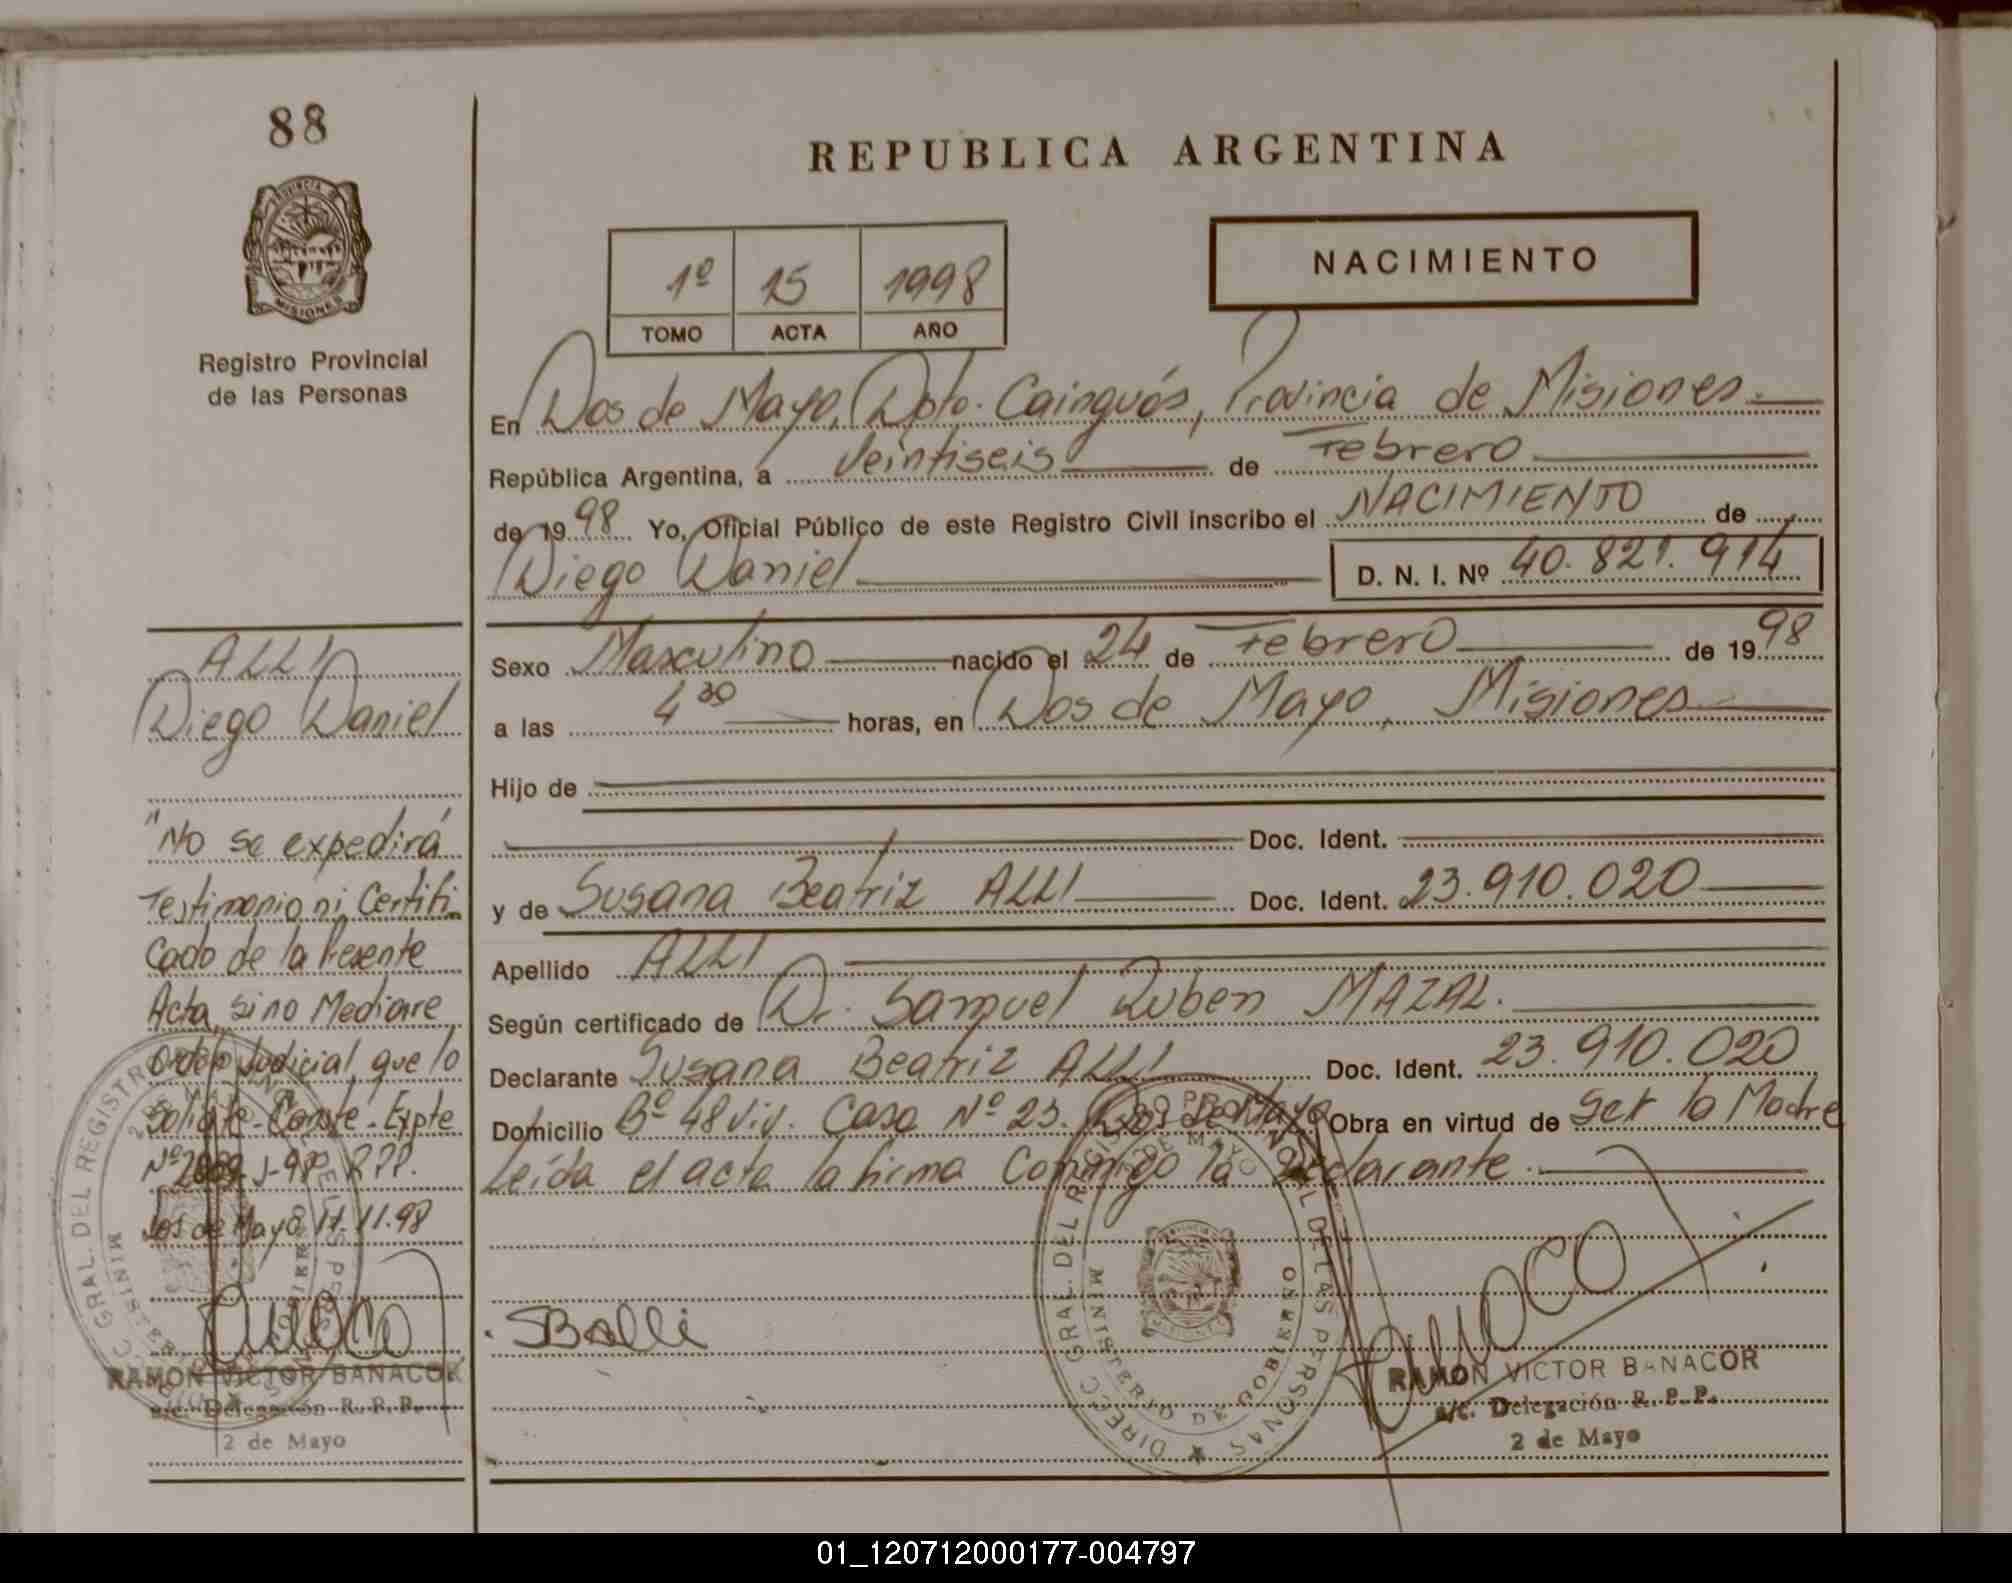 88
REPUBLICA ARGENTINA
PROVINCIA DE
MISIONES
Registro Provincial
de las Personas
1º 15 1998
TOMO ACTA AÑO
NACIMIENTO
En Dos de Mayo, Dpto. Cainguás, Provincia de Misiones.
República Argentina, a Veintiseis de Febrero
de 1998 Yo, Oficial Público de este Registro Civil inscribo el NACIMIENTO de
Diego Daniel D. N. I. Nº 40.821.914
Sexo Masculino nacido el 24 de Febrero de 1998
a las 4 30 horas, en Dos de Mayo, Misiones
Hijo de
Doc. Ident.
y de Susana Beatriz ALLI Doc. Ident. 23.910.020
Apellido ALLI
Según certificado de Dr. Samuel Ruben MAZAL.
Declarante Susana Beatriz ALLI Doc. Ident. 23.910.020
Domicilio Bº 48 viv. Casa Nº 23. Dos de Mayo Obra en virtud de ser la Madre
Leída el acta la firma Conmigo la Declarante.
SBalli
DIRECC GRAL. DEL REGISTRO PROVINCIAL DE LAS PERSONAS
2 DE MAYO
MINISTERIO DE GOBIERNO
RAMON VICTOR BANACOR
a/c. Delegación R. P. P.
2 de Mayo
ALLI
Diego Daniel
"No se expedirá
Testimonio ni Certifi
cado de la Presente
Acta sino Mediare
Orden Judicial que lo
Solicite - Conste - Expte
Nº J-98 R.P.P.
Dos de Mayo 11.11.98
RAMON VICTOR BANACOR
a/c. Delegación R. P. P.
2 de Mayo
01_120712000177-004797